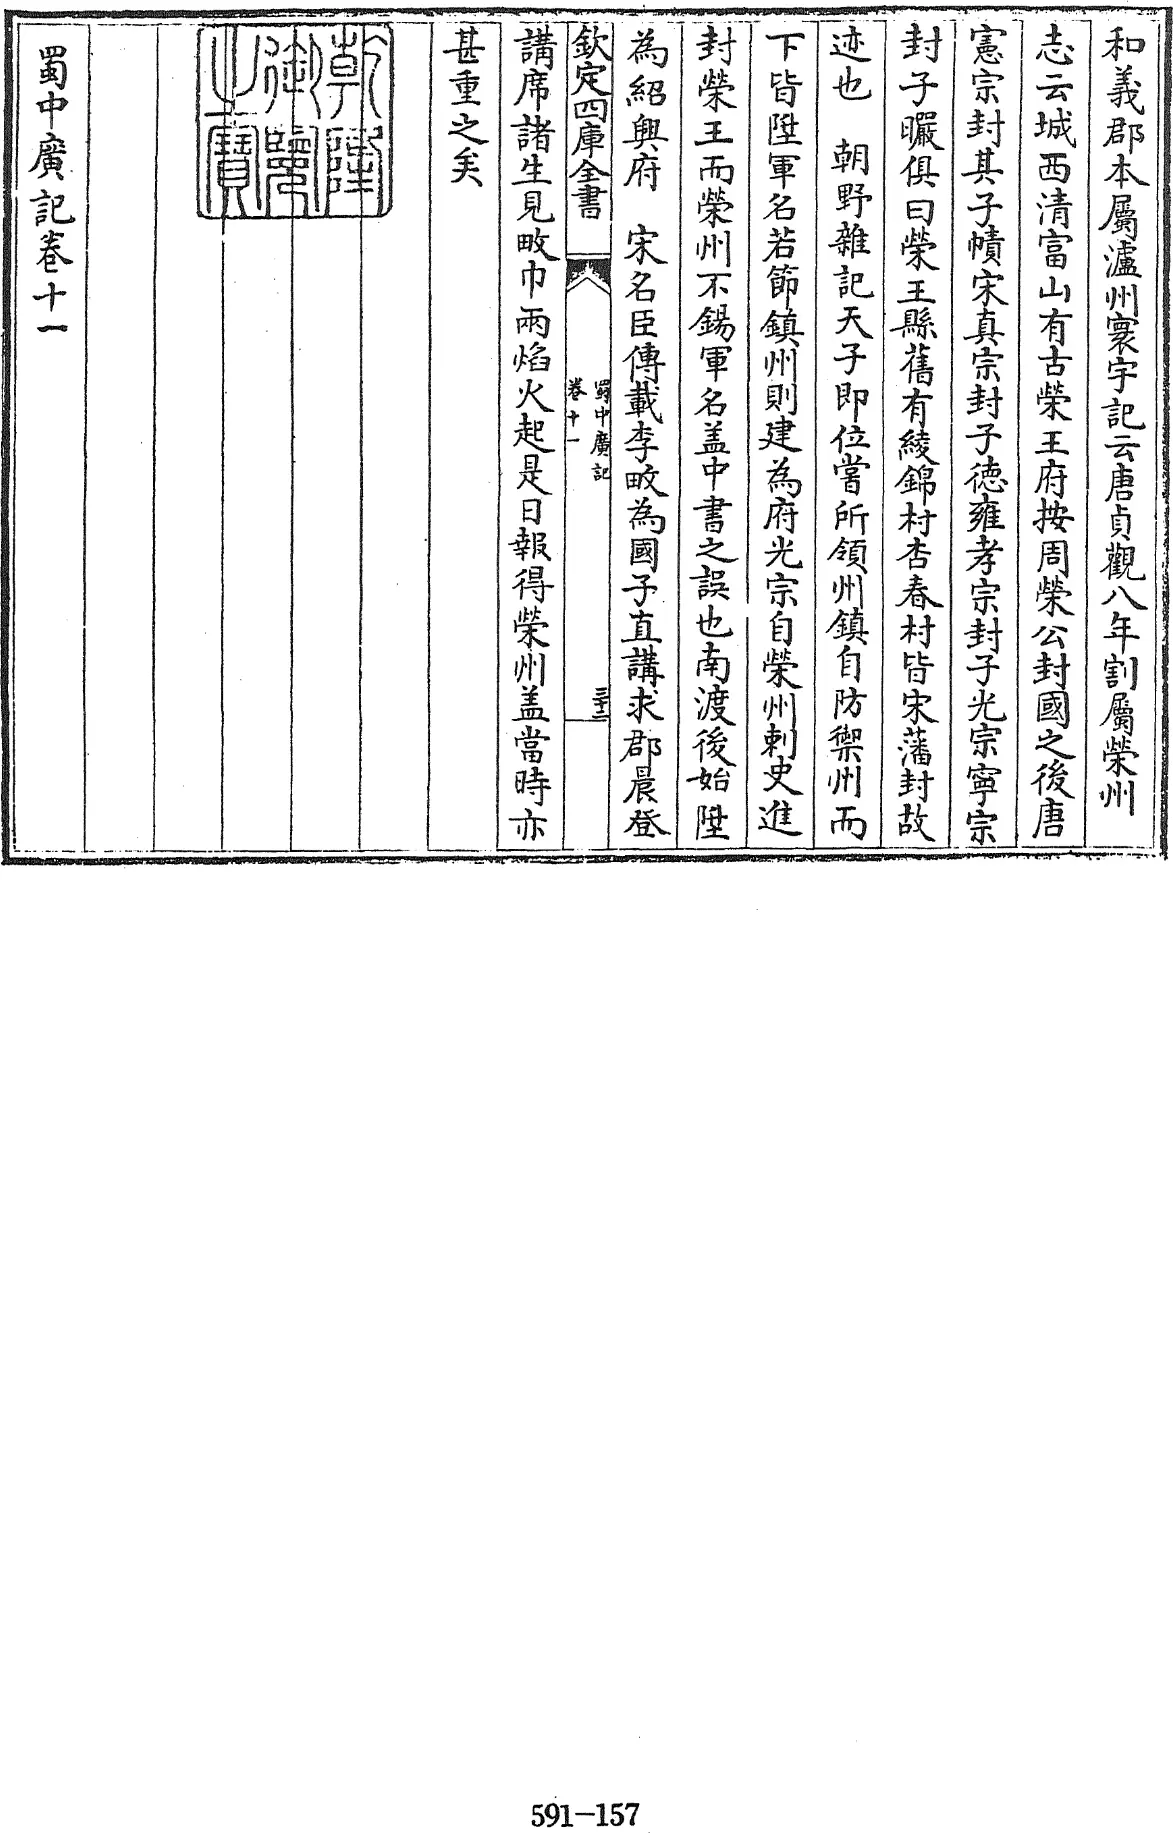 和義郡本屬瀘州寰宇記云唐貞觀八年割屬榮州
志云城西清富山有古榮王府按周榮公封國之後唐
憲宗封其子憒宋真宗封子德雍孝宗封子光宗寧宗
封子曮俱曰榮王縣舊有綾錦村杏春村皆宋藩封故
迹也　朝野雜記天子即位嘗所領州鎮自防禦州而
下皆陞軍名若節鎮州則建為府光宗自榮州刺史進
封榮王而榮州不錫軍名盖中書之誤也南渡後始陞
為紹興府　宋名臣傳載李畋為國子直講求郡晨登
欽定四庫全書
蜀中廣記
卷十一
三十二
講席諸生見畋巾兩焰火起是日報得榮州盖當時亦
甚重之矣
乾隆
御覽
之寶
蜀中廣記卷十一
591-157